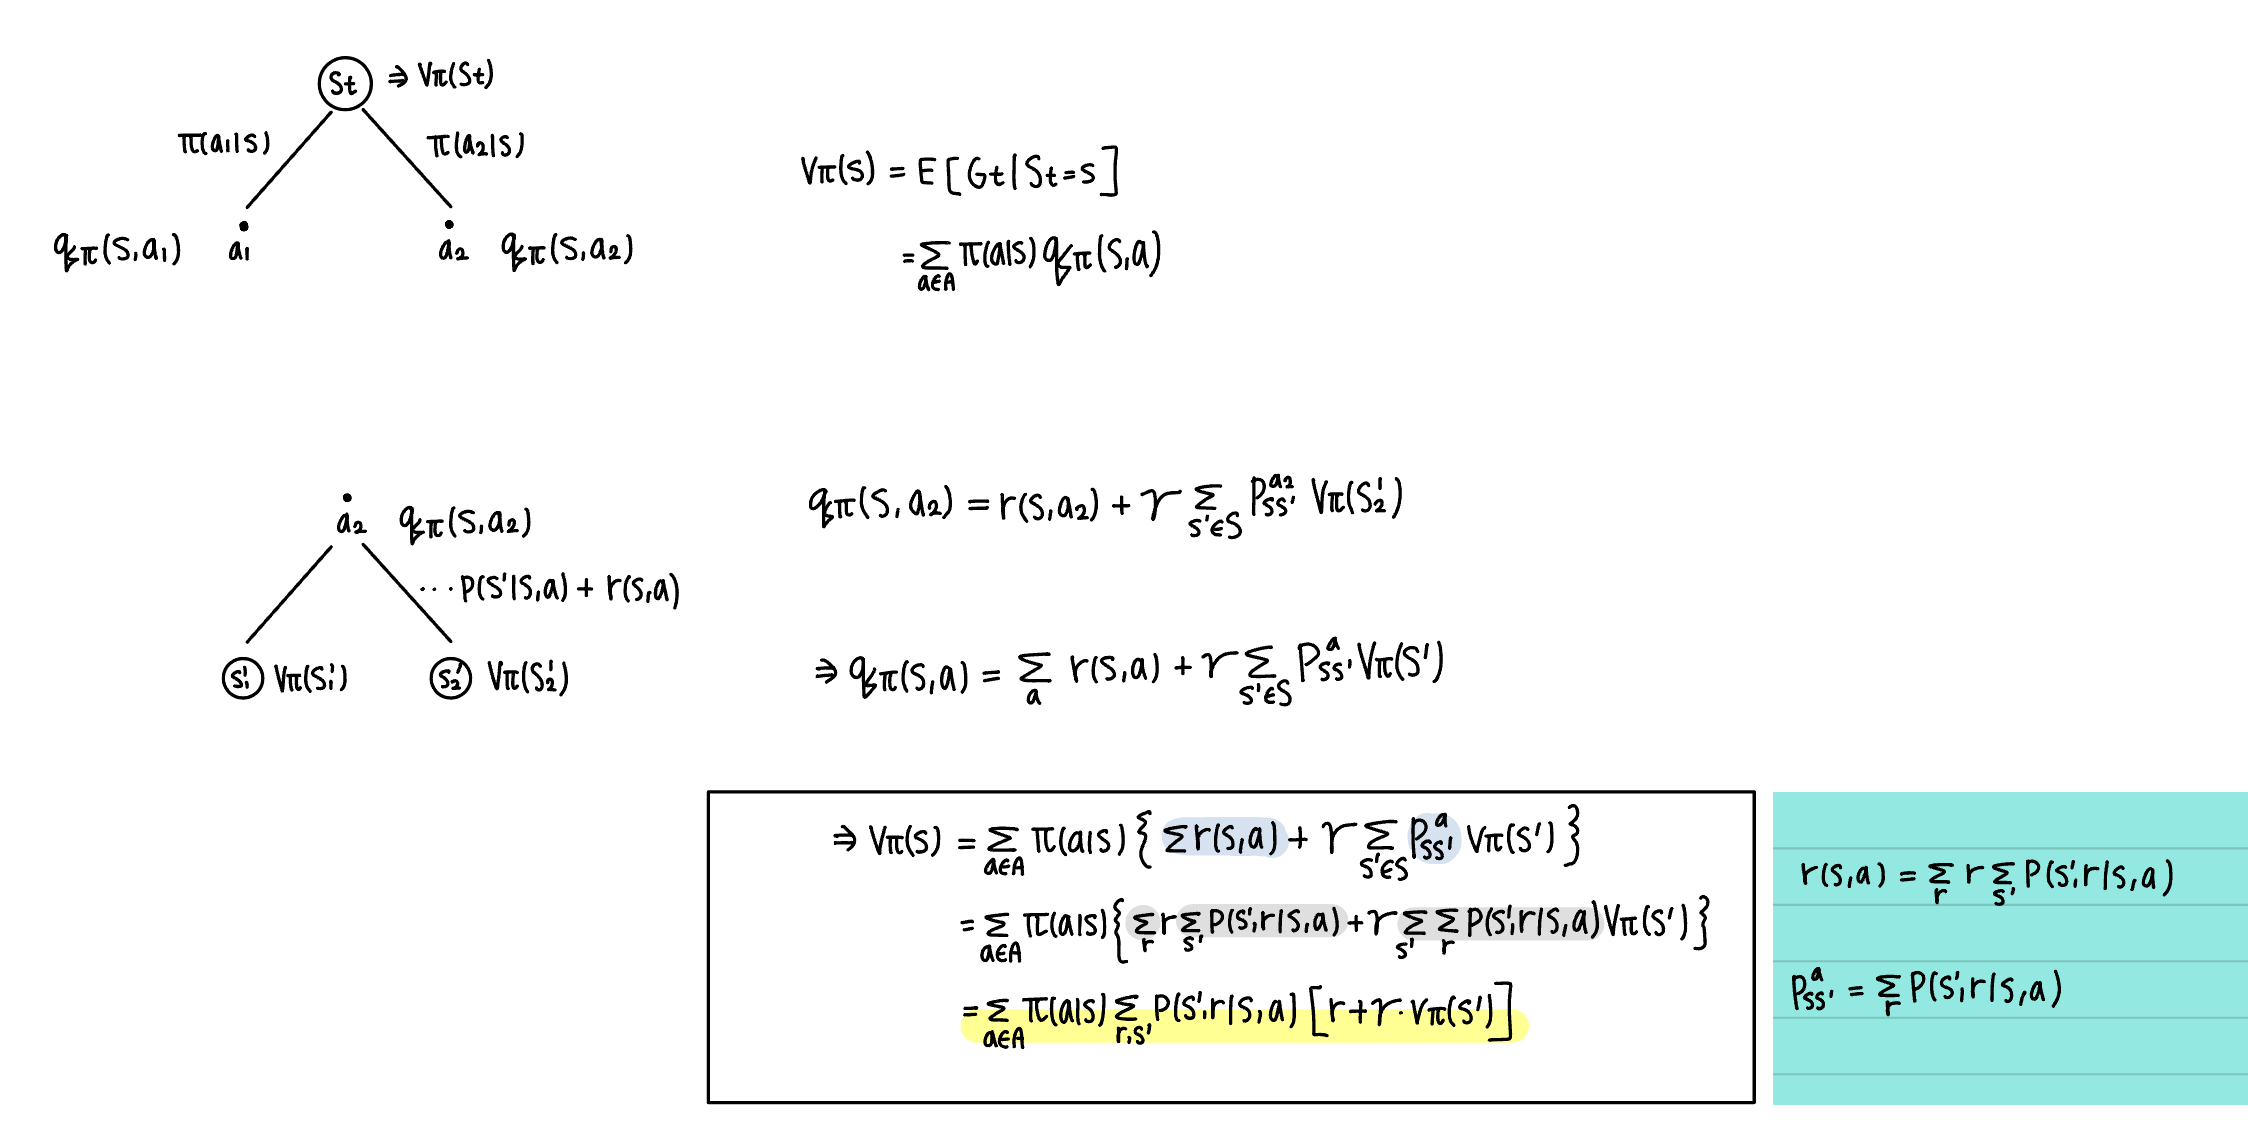 St ⇒ Vπ(St)
π(a₁|s) π(a₂|s)
qπ(s,a₁) a₁ a₂ qπ(s,a₂)
Vπ(s) = E[Gt|St=s]
= Σ_{a∈A} π(a|s) qπ(s,a)
a₂ qπ(s,a₂)
··· p(s'|s,a) + r(s,a)
s₁' Vπ(s₁') s₂' Vπ(s₂')
qπ(s,a₂) = r(s,a₂) + γ Σ_{s'∈S} P_{ss'}^{a₂} Vπ(s₂')
⇒ qπ(s,a) = Σ_a r(s,a) + γ Σ_{s'∈S} P_{ss'}^{a} Vπ(s')
⇒ Vπ(s) = Σ_{a∈A} π(a|s) { Σ r(s,a) + γ Σ_{s'∈S} P_{ss'}^{a} Vπ(s') }
= Σ_{a∈A} π(a|s) { Σ_r r Σ_{s'} P(s',r|s,a) + γ Σ_{s'} Σ_r P(s',r|s,a) Vπ(s') }
= Σ_{a∈A} π(a|s) Σ_{r,s'} P(s',r|s,a) [r + γ·Vπ(s')]
r(s,a) = Σ_r r Σ_{s'} P(s',r|s,a)
P_{ss'}^{a} = Σ_r P(s',r|s,a)